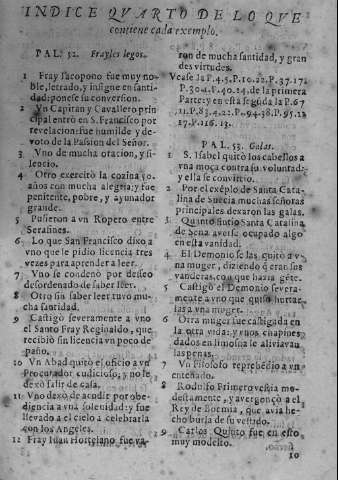 INDICE QVARTO DE LO QVE
contiene cada exemplo.
PAL. 52. Frayles legos.
1 Fray Iacopono fue muy no-
ble, letrado, y insigne en santi-
dad: ponese su conversion.
2 Vn Capitan y Cavallero prin
cipal entrò en S. Francisco por
revelacion: fue humilde y de-
voto de la Passion del Señor.
3 Vno de mucha oracion, y si-
lencio.
4 Otro exercitò la cozina 50.
años con mucha alegria: y fue
penitente, pobre, y ayunador
grande.
5 Pusieron a vn Ropero entre
Serafines.
6 Lo que San Francisco dixo a
vno que le pidio licencia tres
vezes para aprender a leer.
7 Vno se condenò por desseo
desordenado de saber leer.
8 Otro sin saber leer tuvo mu-
cha santidad.
9 Castigò severamente a vno
el Santo Fray Reginaldo, que
recibiò sin licencia vn poco de
paño.
10 Vn Abad quitò el oficio a vn
Procurador cudicioso, y no le
dexò salir de casa.
11 Vno dexò de acudir por obe-
diencia a vna solenidad: y fue
llevado al cielo a celebrarla
con los Angeles.
12 Fray Iuan Hortelano fue va-
ron de mucha santidad, y gran
des virtudes.
Vease la P. 4. 5. P. 10. 22. P. 37. 17.
P. 30. 4. P. 40. 14. de la primera
Parte: y en esta segũda la P. 67
11. P. 83. 4. 22. P. 94. 38. P. 95. 12
17. P. 116. 13.
PAL. 53. Galas.
1 S. Isabel quitò los cabellos a
vna moça contra su voluntad:
y ella se convirtio.
2 Por el exẽplo de Santa Cata-
lina de Suecia muchas señoras
principales dexaron las galas.
3 Quanto sintio Santa Catalina
de Sena averse ocupado algo
en esta vanidad.
4 El Demonio se las quitò a v-
na muger, diziendo q̃ eran sus
vanderas con que hazia gẽte.
5 Castigò el Demonio severa-
mente a vno que quiso hurtar-
las a vna muger.
6 Otra muger fue castigada en
la otra vida: y vnos chapines
dados en limosna le aliviavan
las penas.
7 Vn Filosofo reprehẽdio a vn
entenado.
8 Rodolfo Primero vestia mo-
destamente, y avergonçò a el
Rey de Boemia, que avia he-
cho burla de su vestido.
9 Carlos Quinto fue en esto
muy modesto.
10